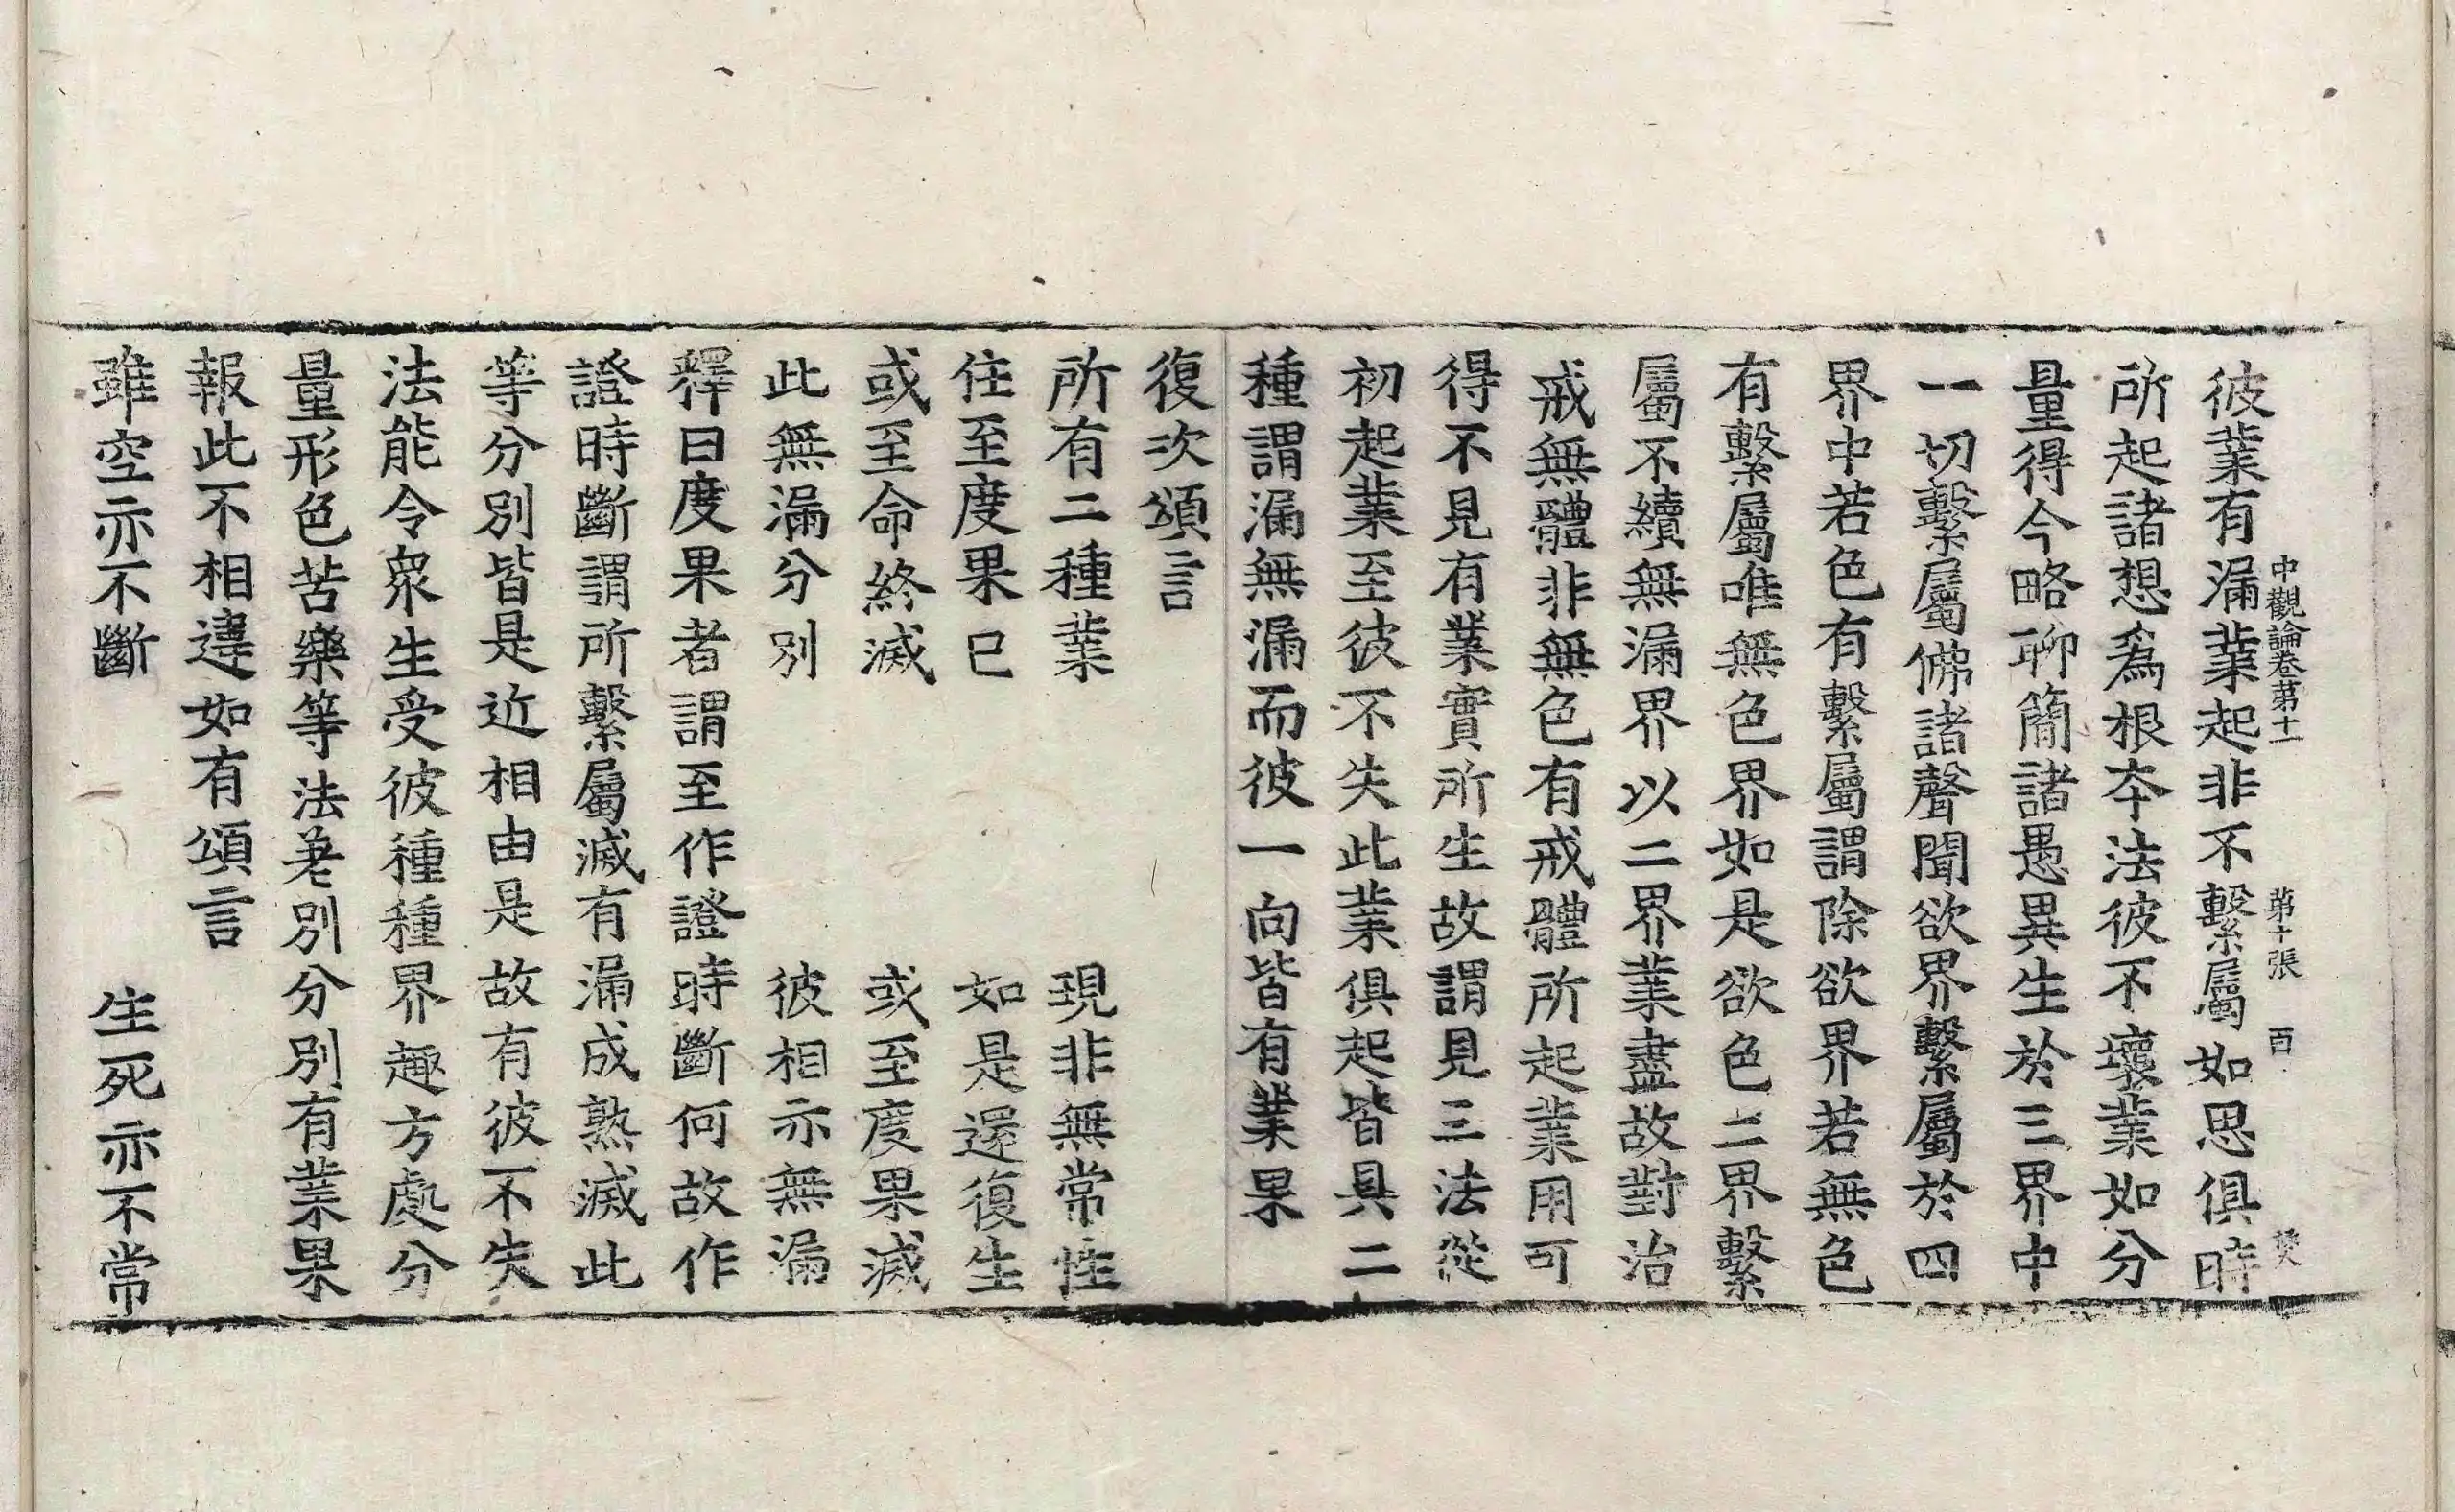 中觀論卷第十一 第十張 百
彼業有漏業起非不繫屬如思俱時
所起諸想為根夲法彼不壞業如分
量得今略聊簡諸愚異生於三界中
一切繫屬佛諸聲聞欲界繫屬於四
界中若色有繫屬謂除欲界若無色
有繫屬唯無色界如是欲色二界繫
屬不續無漏界以二界業盡故對治
戒無體非無色有戒體所起業用可
得不見有業實所生故謂見三法從
初起業至彼不失此業俱起皆具二
種謂漏無漏而彼一向皆有業果
復次頌言
所有二種業 現非無常性
住至度果已 如是還復生
或至命終滅 或至度果滅
此無漏分別 彼相亦無漏
釋曰度果者謂至作證時斷何故作
證時斷謂所繫屬滅有漏成熟滅此
等分別皆是近相由是故有彼不失
法能令衆生受彼種種界趣方處分
量形色苦樂等法差別分別有業果
報此不相違如有頌言
雖空亦不斷 生死亦不常